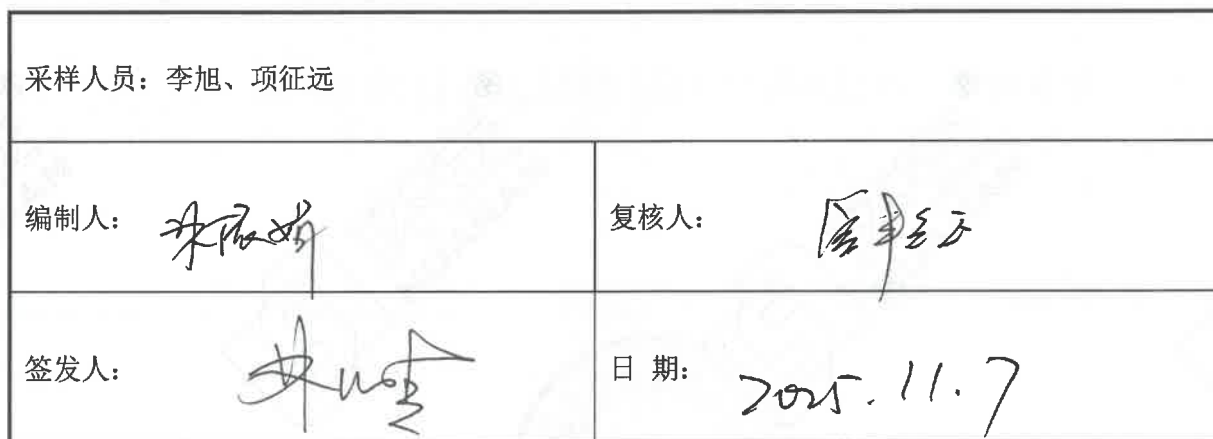 采样人员：李旭、项征远
编制人：
复核人：
签发人：
日 期： 2025.11.7